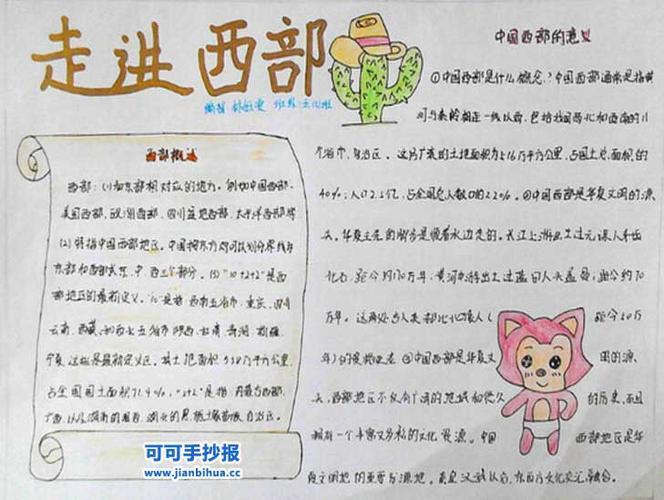 走进西部
编者 班级
西部概述
西部:(1)和东部相对应的地方。例如中国西部、
美国西部、欧洲西部、四川盆地西部、太平洋西部等
(2)特指中国西部地区。中国按东方划可以划分界线为
东部和西部或东、中、西三个部分。(3)"10+2+2"是西
部地区的最新定义。是指西南五省市:重庆、四川
云南、西藏和西北五省市陕西、甘肃、青海、新疆、
宁夏 定义区。其土地面积538万平方公里
占全国国土面积71.4%,"2+2"是指:内蒙古西部、
广西 以及湖南的湘西、湖北的恩施土家苗族自治区。
中国西部的意义
①中国西部是什么概念?中国西部通常是指黄
河与秦岭相连一线以西,包括我国西北和西南的11
个省市、自治区。这片广袤的土地面积为 万平方公里,占国土总面积的
人口2.5亿,占全国总人数口的22%。②中国西部是华夏文明的源
头。华夏文尧的脚步是顺着水边走的。长江上游出土过元谋人牙齿
化石,距今约170万年;黄河中游出土过蓝田人头盖骨,距今约70
万年。这两处古人类都比北京人( 距今50万
年)的资格还老 ③中国西部是华夏文 明的源
头,西部地区不仅有广阔的地域和悠久 的历史,而且
拥有一个丰富多彩的文化资源。中国 西部地区是华
夏文明的重要发源地。秦皇汉武以后,东西方文化交汇融合。
可可手抄报
www.jianbihua.cc